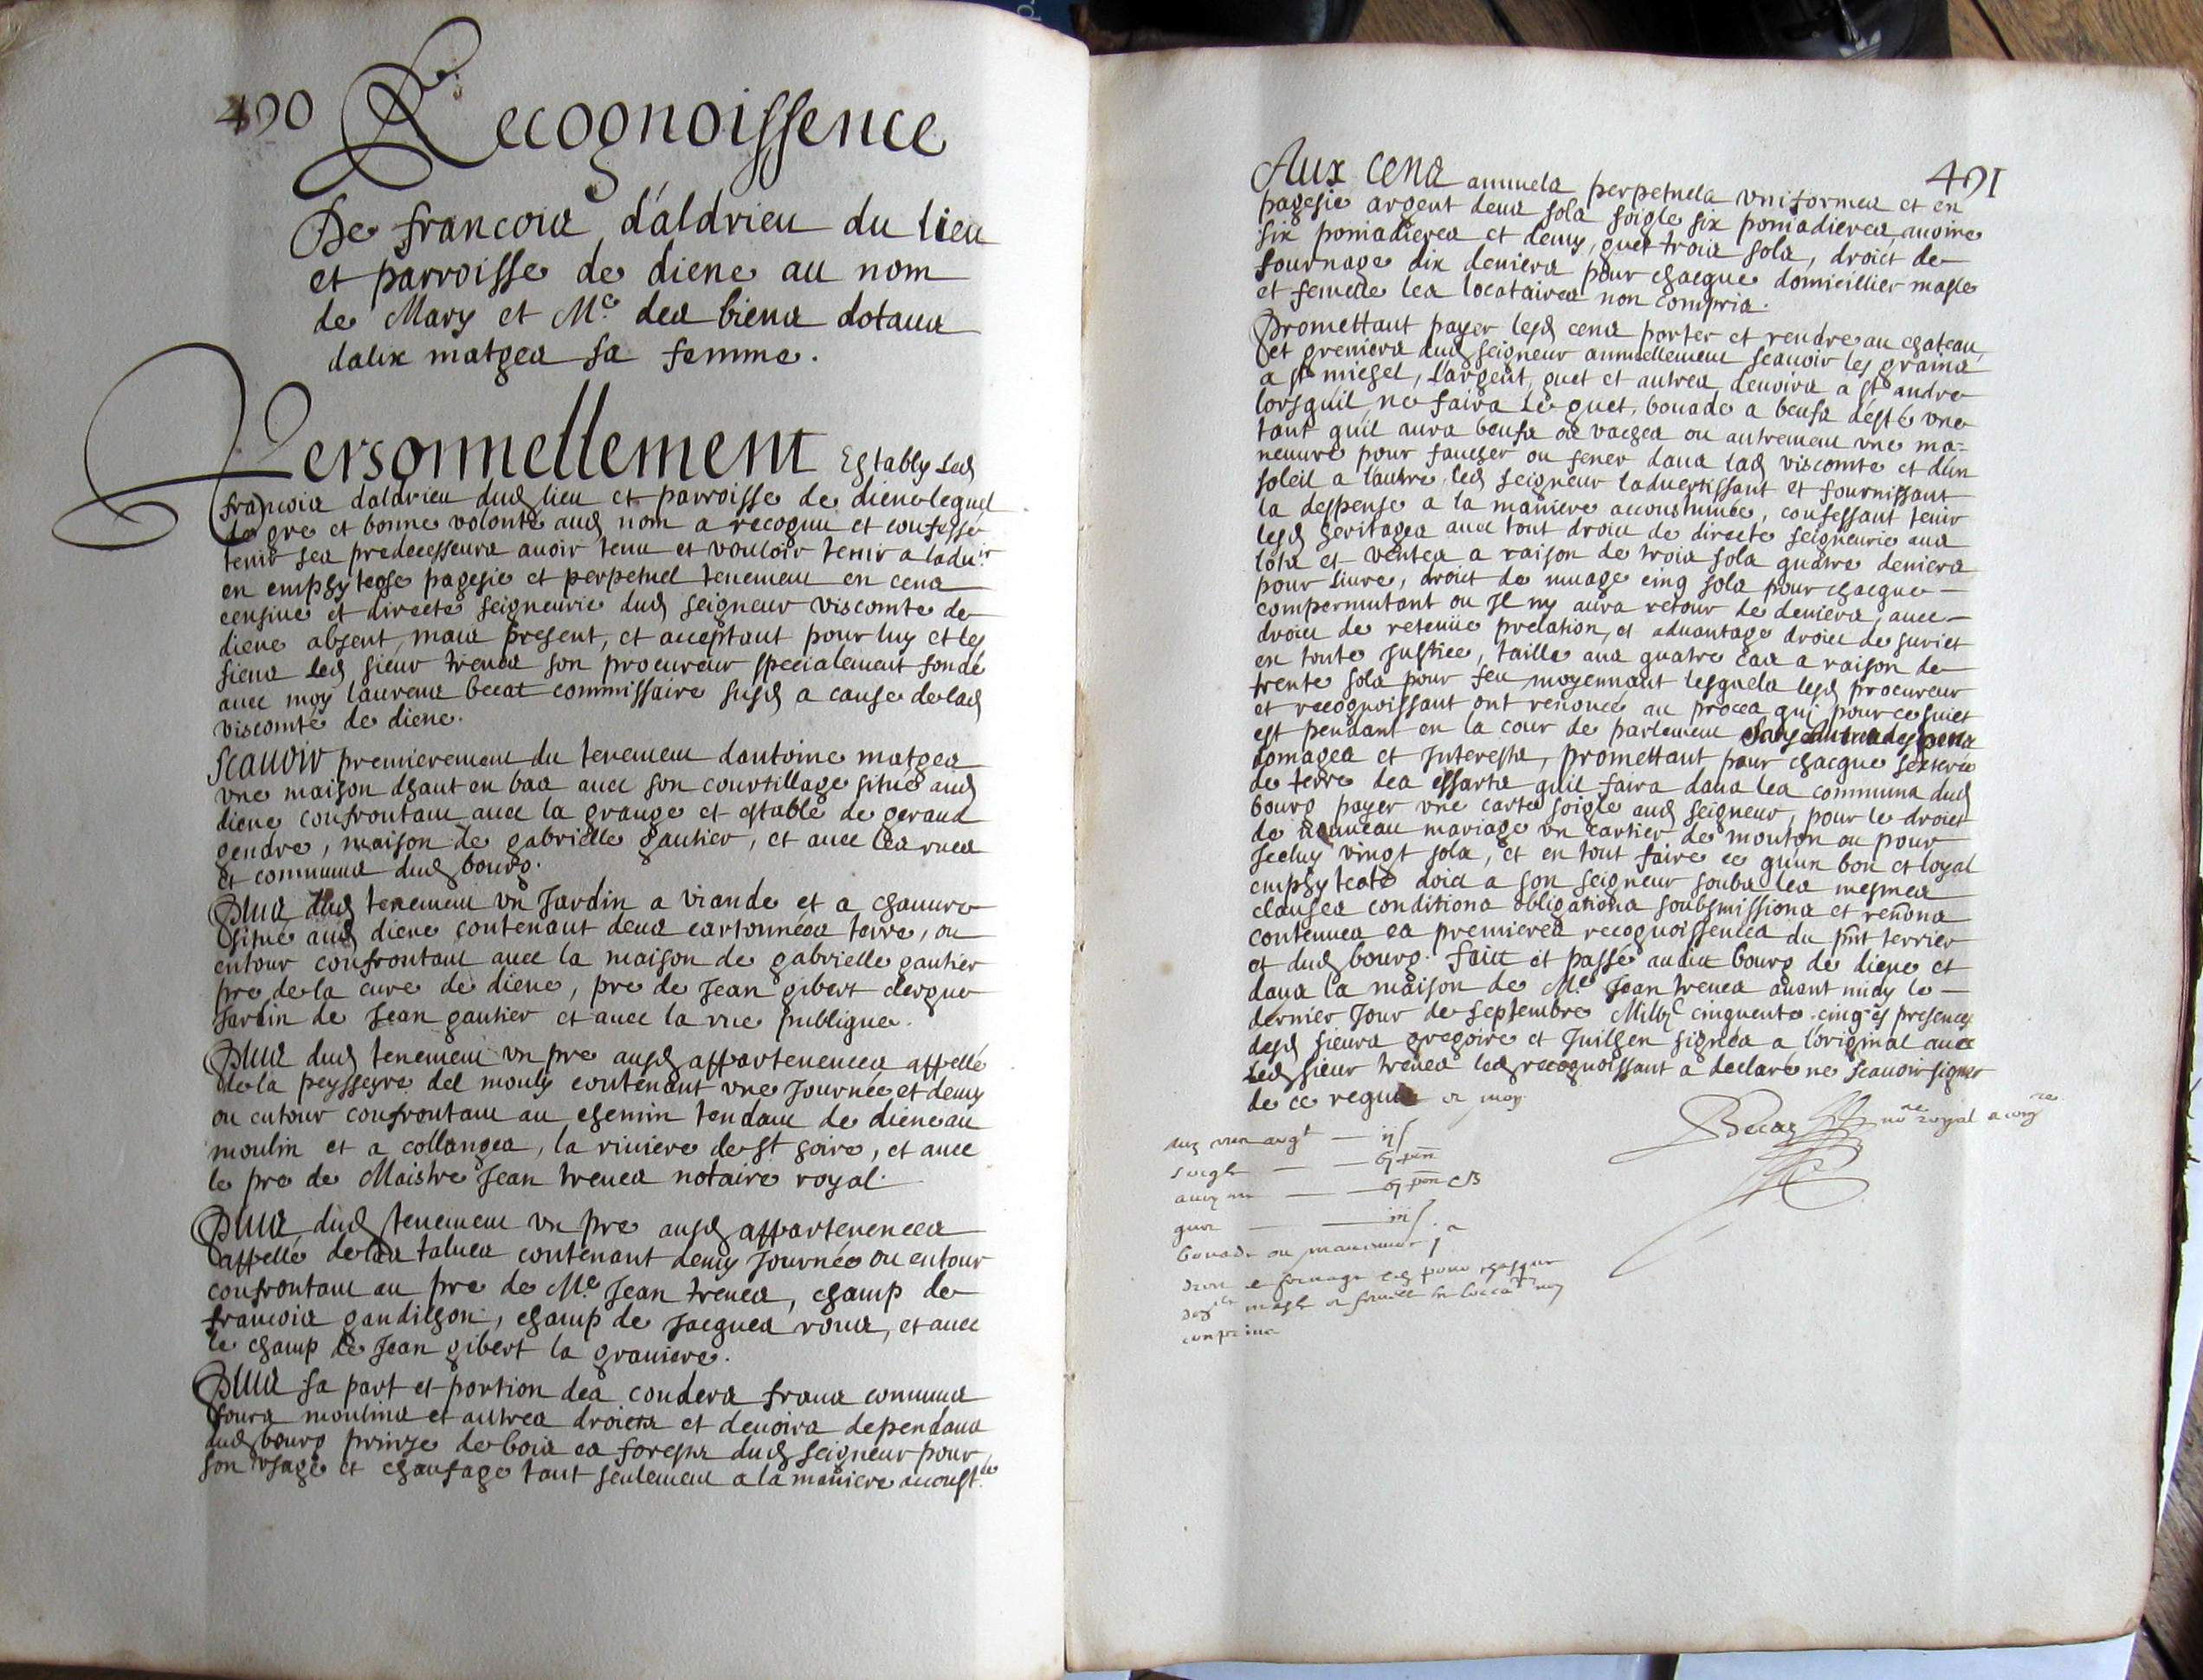 490
Recognoissence
De francois d'aldrieu du lieu
et parroisse de diene au nom
de Mary et Me des biens dotaux
dalix matges sa femme.
Personnellement Estably Led
francois daldrieu dud lieu et parroisse de diene lequel
de gre et bonne volonté aud nom a recognu et confessé
tenir ses predecesseurs avoir tenu et vouloir tenir a ladvir
en emphyteose pagesie et perpetuel tenement en cens
censive et directe seigneurie dud seigneur viscomte de
diene absent, mais present, et acceptant pour luy et les
siens Led sieur treves son procureur specialement fondé
avec moy laurens becat commissaire susd a cause de lad
viscomté de diene.
Scauoir premierement du tenement dantoine matges
vne maison dhaut en bas avec son courtillage situé aud
diene confrontant avec la grange et estable de geraud
gendre, maison de gabrielle gautier, et avec les rues
et communs dud bourg.
Plus dud tenement vn Jardin a viande et a chanvre
situé aud diene contenant deux cartonnées terre, ou
entour confrontant avec la maison de gabrielle gautier
pre de la cure de diene, pre de Jean gibert clergue
Jardin de Jean gautier et avec la rue publique.
Plus dud tenement vn pre ausd appartenences appellé
de la peysseyre del mouly contenant vne Journée et demy
ou entour confrontant au chemin tendant de diene au
moulin et a collanges, la riviere de st goire, et avec
le pre de Maistre Jean treves notaire royal.
Plus dud tenement vn pre ausd appartenences
appellé de las talves contenant demy Journée ou entour
confrontant au pre de Me Jean treves, champ de
francois gandilhon, champ de Jacques roux, et avec
le champ de Jean gibert la graniere.
Plus sa part et portion des couders fraux communs
fours moulins et autres droicts et devoirs dependans
dud bourg prinze de bois es forests dud seigneur pour
son vsage et chaufage tant seulement a la maniere accoustée
491
Aux cens annuels perpetuels vniformes et en
pagesie argent deux sols soigle six pomadieres, avoine
six pomadieres et demy, guet trois sols, droict de
fournage dix deniers pour chacque domicillier masle
et femelle les locataires non compris.
Promettant payer lesd cens porter et rendre au chateau
et greniers dud seigneur annuellement scauoir les grains
a st michel, L'argent, guet et autres devoirs a st andre
lorsquil ne faira Le guet, bouade a beufs d'esté vne
tant quil aura beufs ou vaches ou autrement vne ma=
neuvre pour faucher ou fener dans lad viscomte et d'un
soleil a l'autre, led seigneur ladvertissant et fournissant
la despense a la maniere accoustumée, confessant tenir
lesd heritages avec tout droict de directe seigneurie aux
lots et ventes a raison de trois sols quatre deniers
pour Livre, droict de muage cinq sols pour chacque
compermutant ou Jl ny aura retour de deniers, avec
droict de retenue prelation, et advantage droict de suriet
en toute Justice, taille aux quatre cas a raison de
trente sols pour feu moyennant lesquels lesd procureur
et recognoissant ont renoncé au proces qui pour ce suiet
est pendant en la cour de parlement sans autres despens
domages et Jnterests, promettant pour chacque sexterée
de terre des essarts quil faira dans les communs dud
bourg payer vne carte soigle aud seigneur, pour le droict
de nouveau mariage vn cartier de mouton ou pour
Jceluy vingt sols, et en tout faire ce qu'un bon et loyal
emphyteote doict a son seigneur soubs les mesmes
clauses conditions obligations soubsmissions et renõns
contenues es premieres recognoissences du pñt terrier
et dud bourg. faict et passé audict bourg de diene et
dans la maison de Me Jean treves avant midy le
dernier Jour de septembre Mil vjc cinquente cinq es presences
desd sieurs gregoire et Juilhen signés a l'original avec
Led sieur treves led recognoissant a declaré ne scauoir signer
de ce requis et moy
Becat nore royal a comre
argt — ij s
soigle — vj pom
avoyne — vj pom
guet — iij s.
bouade ou maneuvre j
droit de fornage pour chasque
masle et femelle
comprins